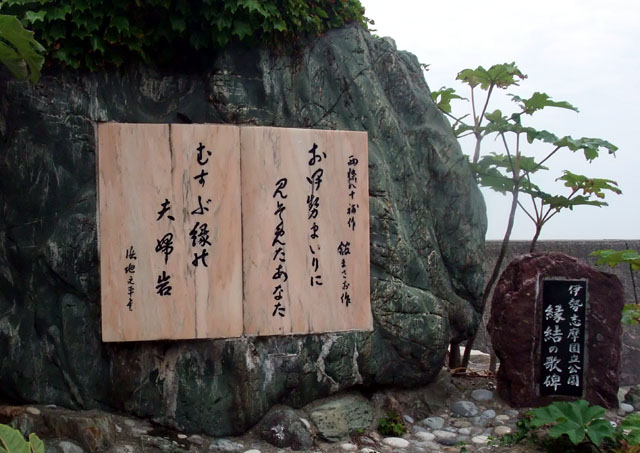 西條八十補作 舘まさお作
お伊勢まいりに
見そめたあなた
むすぶ縁の
夫婦岩
浜地文平書
伊勢志摩国立公園
縁結の歌碑